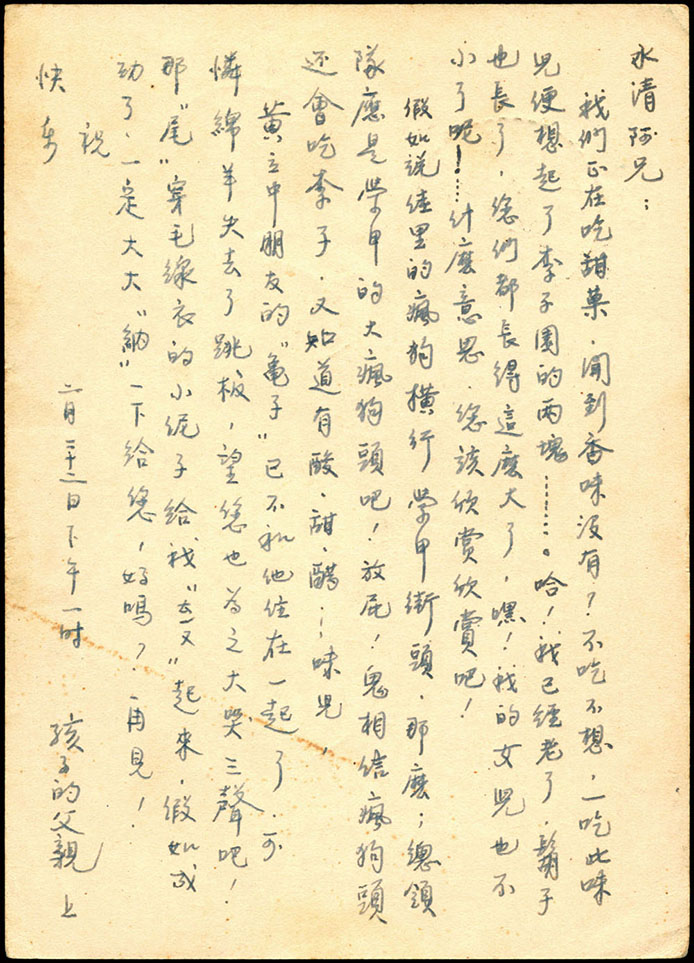 永清阿兄：
我們正在吃甜菓．聞到香味沒有？不吃不想，一吃此味
兒便想起了李子園的兩塊………。哈！我已經老了．鬍子
也長了．您們都長得這麼大了，嘿！我的女兒也不
小了呢！……什麼意思．您該欣賞欣賞吧！
假如說佳里的瘋狗橫行學甲街頭．那麼；總領
隊應是學甲的大瘋狗頭吧！放屁！鬼相信瘋狗頭
还會吃李子．又知道有酸．甜．醋…味兒，
黃立中朋友的"亀子"已不和他住在一起了．可
憐綿羊失去了跳板，望您也為之大哭三聲吧！
那"尾"穿毛線衣的小伲子給我"ㄊㄡ"起來，假如成
功了，一定大大"納"一下給您，好嗎？．再見！
祝
快乐
二月二十二日下午一时　孩子的父親 上